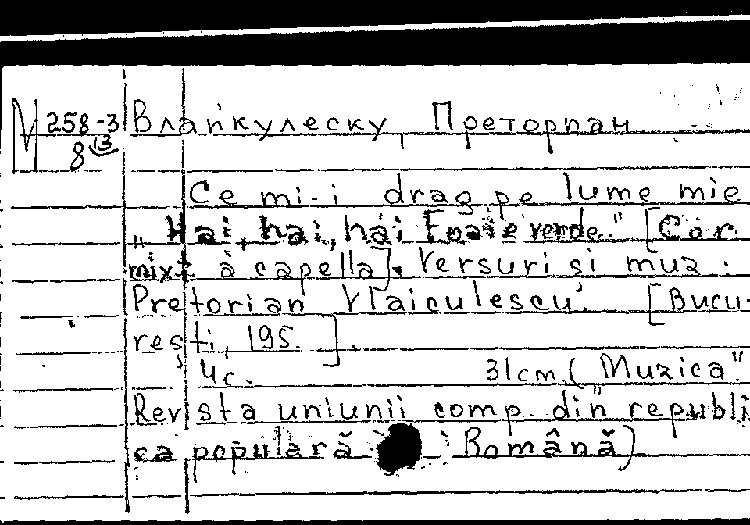 М 258-3 Влайкулеску, Преторпан
8 (13
Ce mi-i drag pe lume mie
"Hai, hai, hai Foaie verde." [Cor
mixt à capella]. Versuri și muz.
Pretorian Vlaiculescu. [Bucu-
rești, 195. ].
4с. 31cm. (Muzica"
Revista uniunii comp. din republi
ca populară Română)